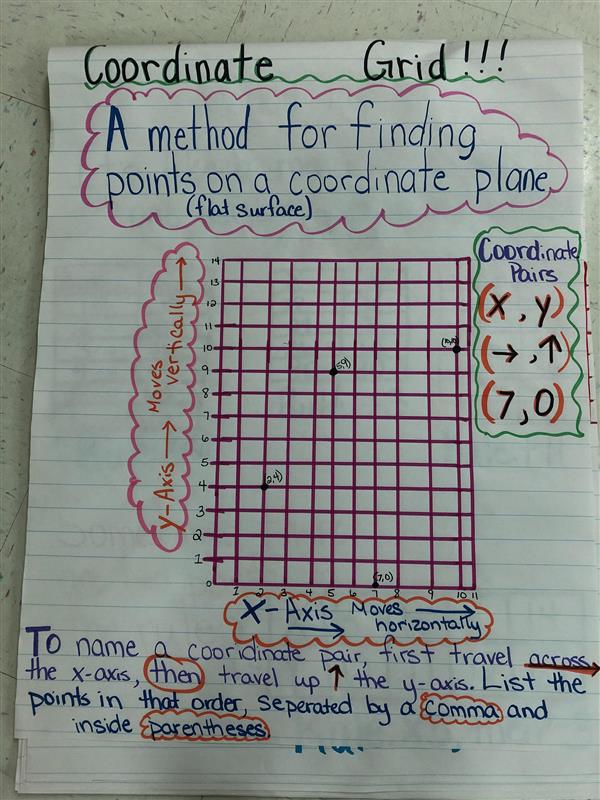 Coordinate Grid!!!
A method for finding
points on a coordinate plane
(flat surface)
Y-Axis → Moves
vertically →
14
13
12
11
10
9
8
7
6
5
4
3
2
1
0
(5,9)
(10,10)
(2,4)
(7,0)
1 2 3 4 5 6 7 8 9 10 11
Coordinate
Pairs
(X, y)
(→, ↑)
(7, 0)
X-Axis Moves →
→ horizontally
To name a cooridinate pair, first travel across →
the x-axis, then travel up ↑ the y-axis. List the
points in that order, seperated by a comma and
inside parentheses